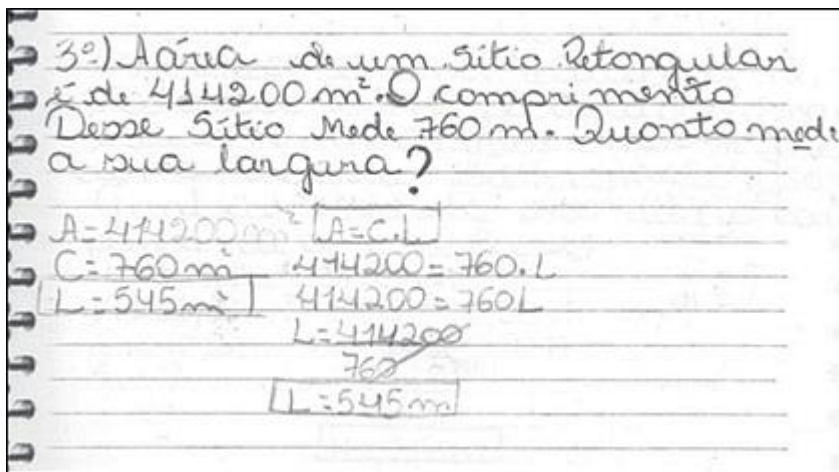 3º) A área de um sítio Retongular
é de 414200 m². O comprimento
Desse Sítio Mede 760 m. Quanto medi
a sua largura?
A=414200 m² A=C.L
C=760 m² 414200=760.L
L=545 m² 414200=760L
L=414200
760
L=545 m